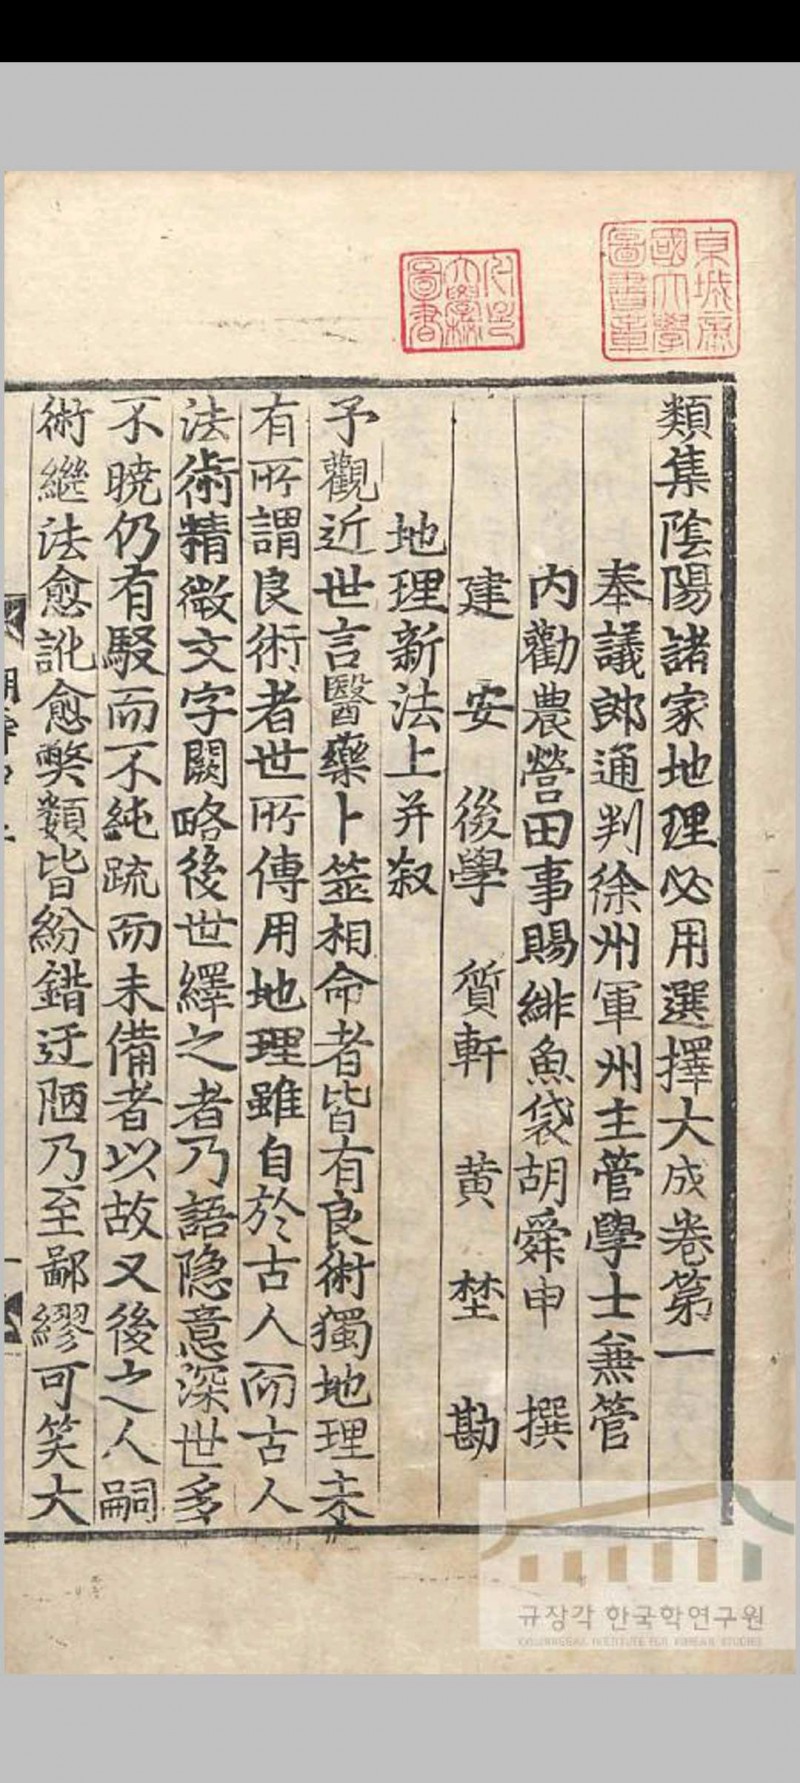 京城帝
國大學
圖書章
서울
大學校
圖書
類集陰陽諸家地理必用選擇大成卷第一
奉議郎通判徐州軍州主管學士兼管
內勸農營田事賜緋魚袋胡舜申 撰
建安後學質軒黃埜勘
地理新法上并叙
予觀近世言醫藥卜筮相命者皆有良術獨地理未
有所謂良術者世所傳用地理雖自於古人而古人
法術精微文字闕略後世繹之者乃語隱意深世多
不曉仍有駁而不純疏而未備者以故又後之人嗣
術繼法愈訛愈弊類皆紛錯迂陋乃至鄙繆可笑大
규장각 한국학연구원
KYUJANGGAK INSTITUTE FOR KOREAN STUDIES